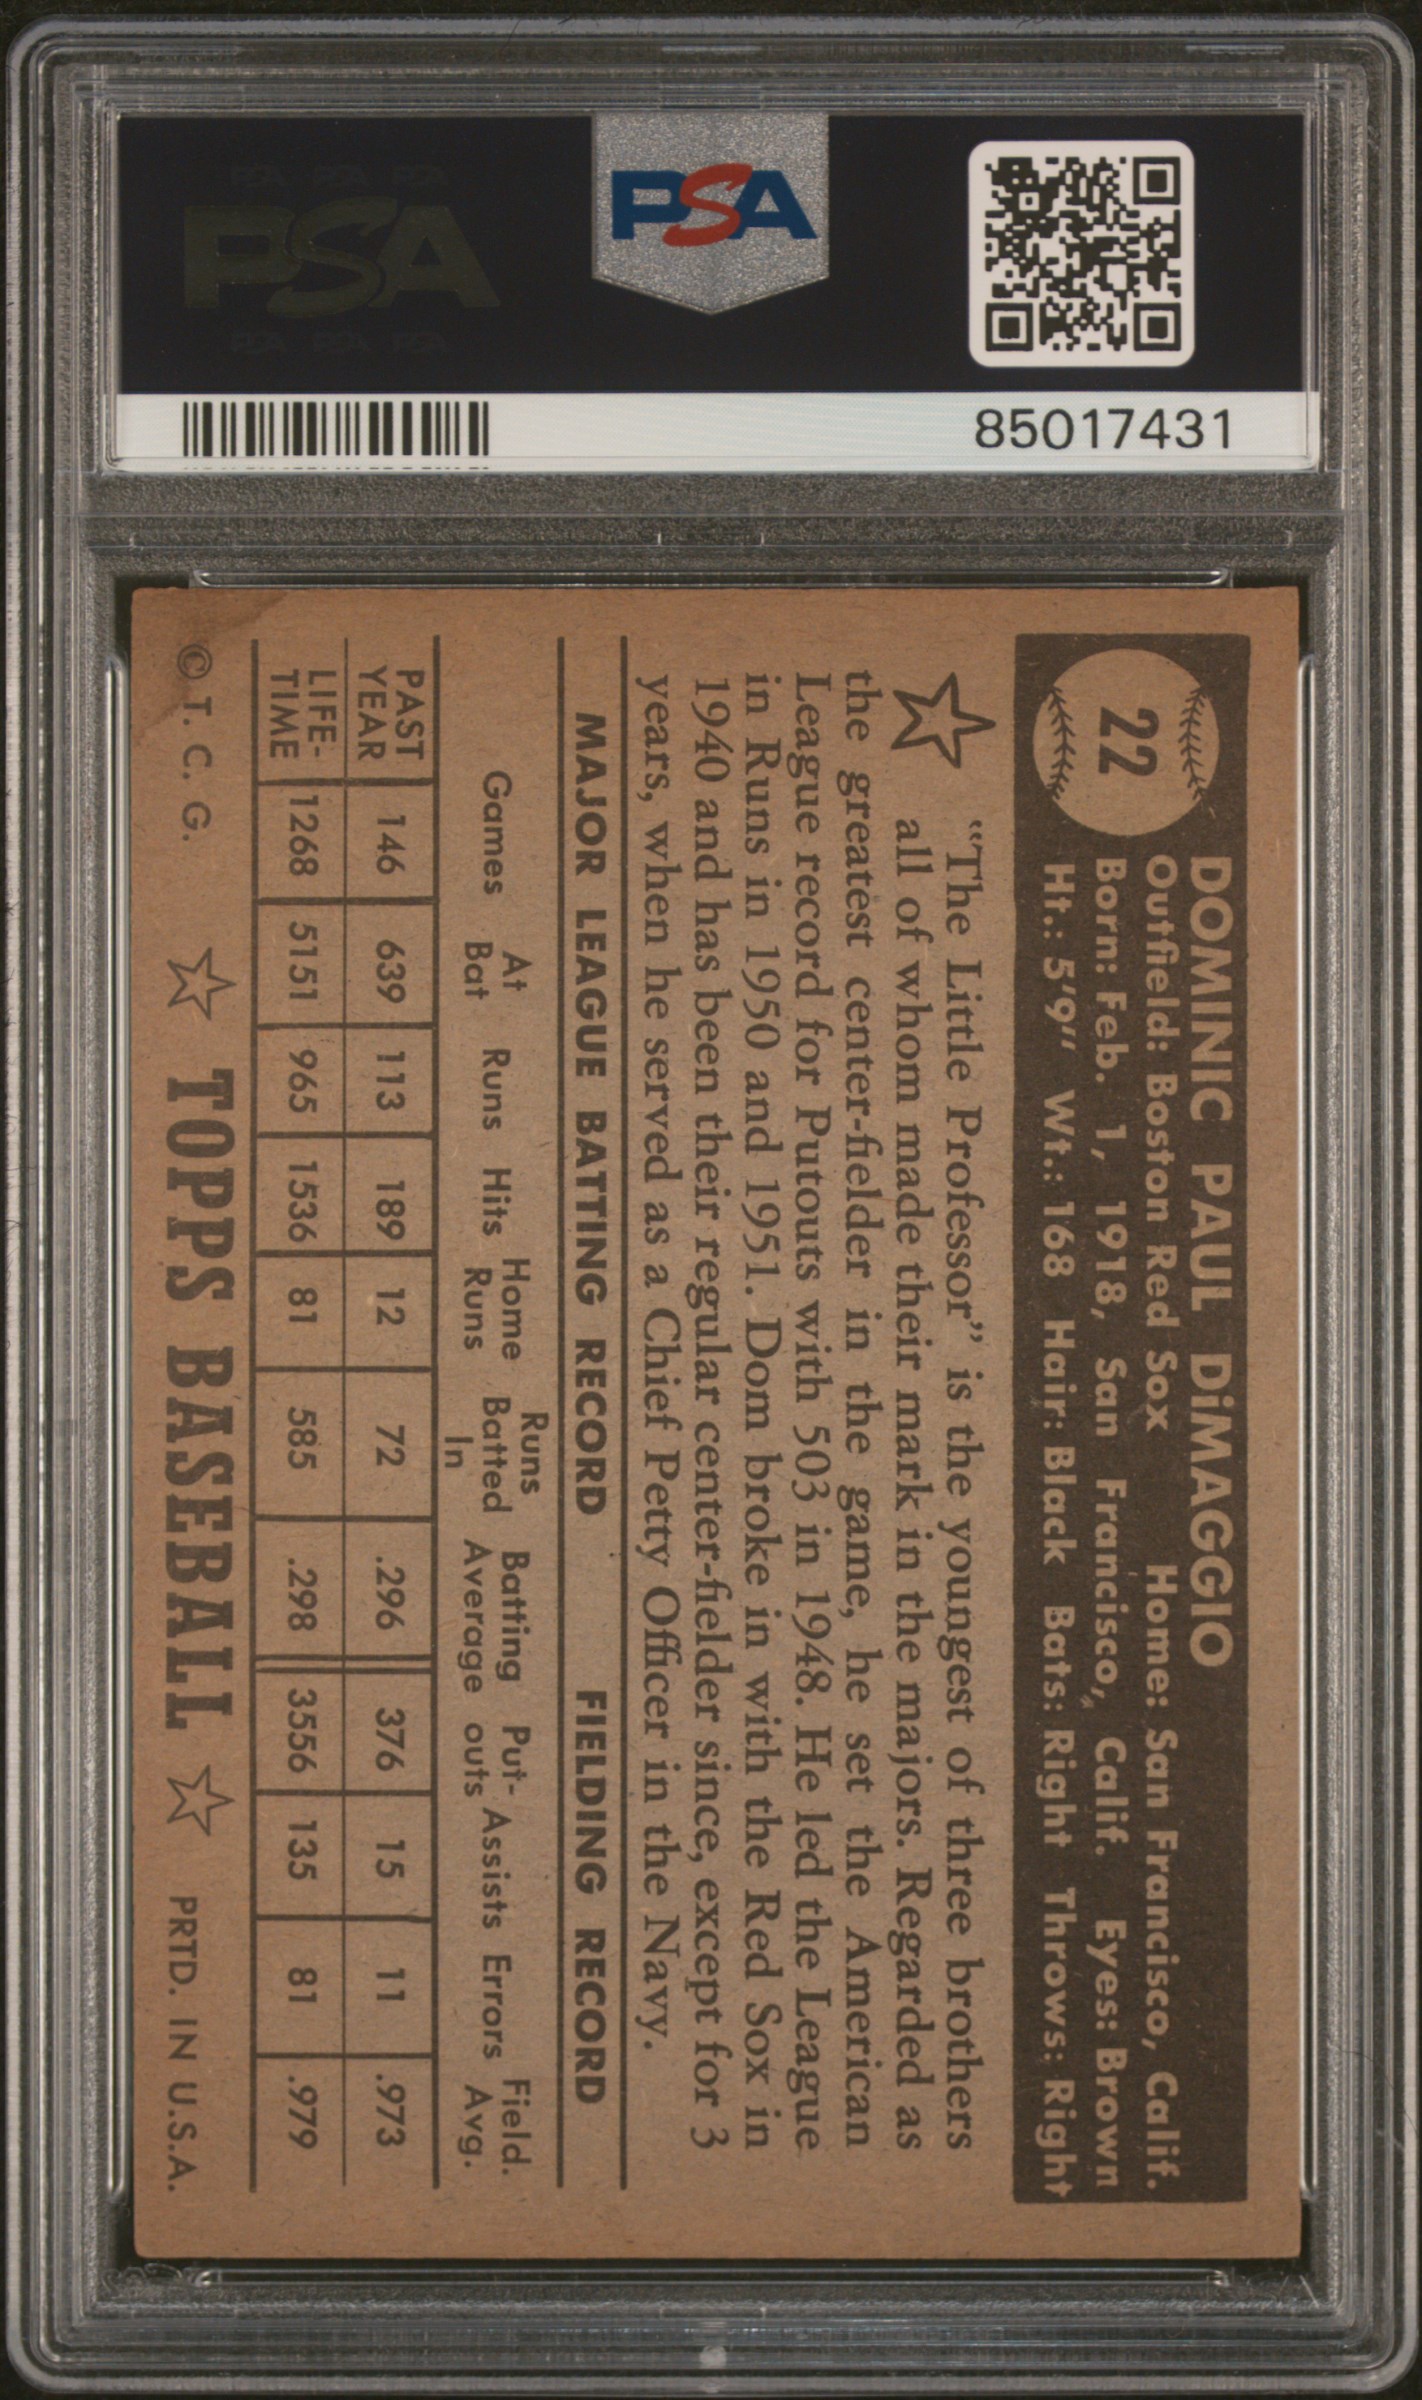 PSA
PSA
85017431
22
DOMINIC PAUL DiMAGGIO
Outfield: Boston Red Sox Home: San Francisco, Calif.
Born: Feb. 1, 1918, San Francisco, Calif. Eyes: Brown
Ht.: 5'9" Wt.: 168 Hair: Black Bats: Right Throws: Right
"The Little Professor" is the youngest of three brothers
all of whom made their mark in the majors. Regarded as
the greatest center-fielder in the game, he set the American
League record for Putouts with 503 in 1948. He led the League
in Runs in 1950 and 1951. Dom broke in with the Red Sox in
1940 and has been their regular center-fielder since, except for 3
years, when he served as a Chief Petty Officer in the Navy.
MAJOR LEAGUE BATTING RECORD FIELDING RECORD
Games At Bat Runs Hits Home Runs Runs Batted In Batting Average Put-outs Assists Errors Field. Avg.
PAST YEAR 146 639 113 189 12 72 .296 376 15 11 .973
LIFE-TIME 1268 5151 965 1536 81 585 .298 3556 135 81 .979
© T. C. G. ☆ TOPPS BASEBALL ☆ PRTD. IN U.S.A.